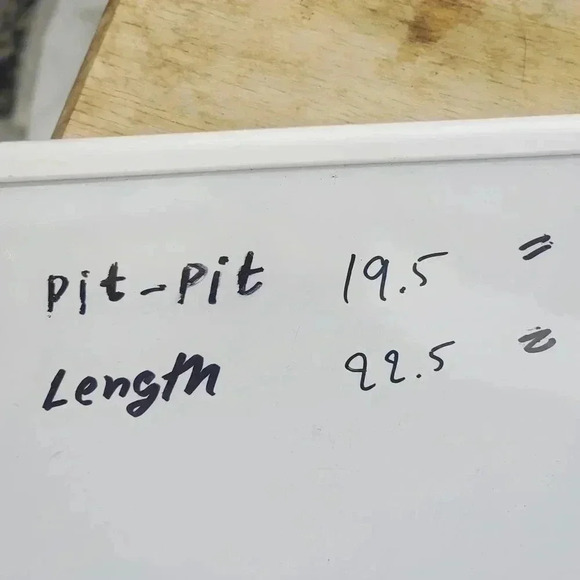 Pit-Pit 19.5 "
Length 22.5 "